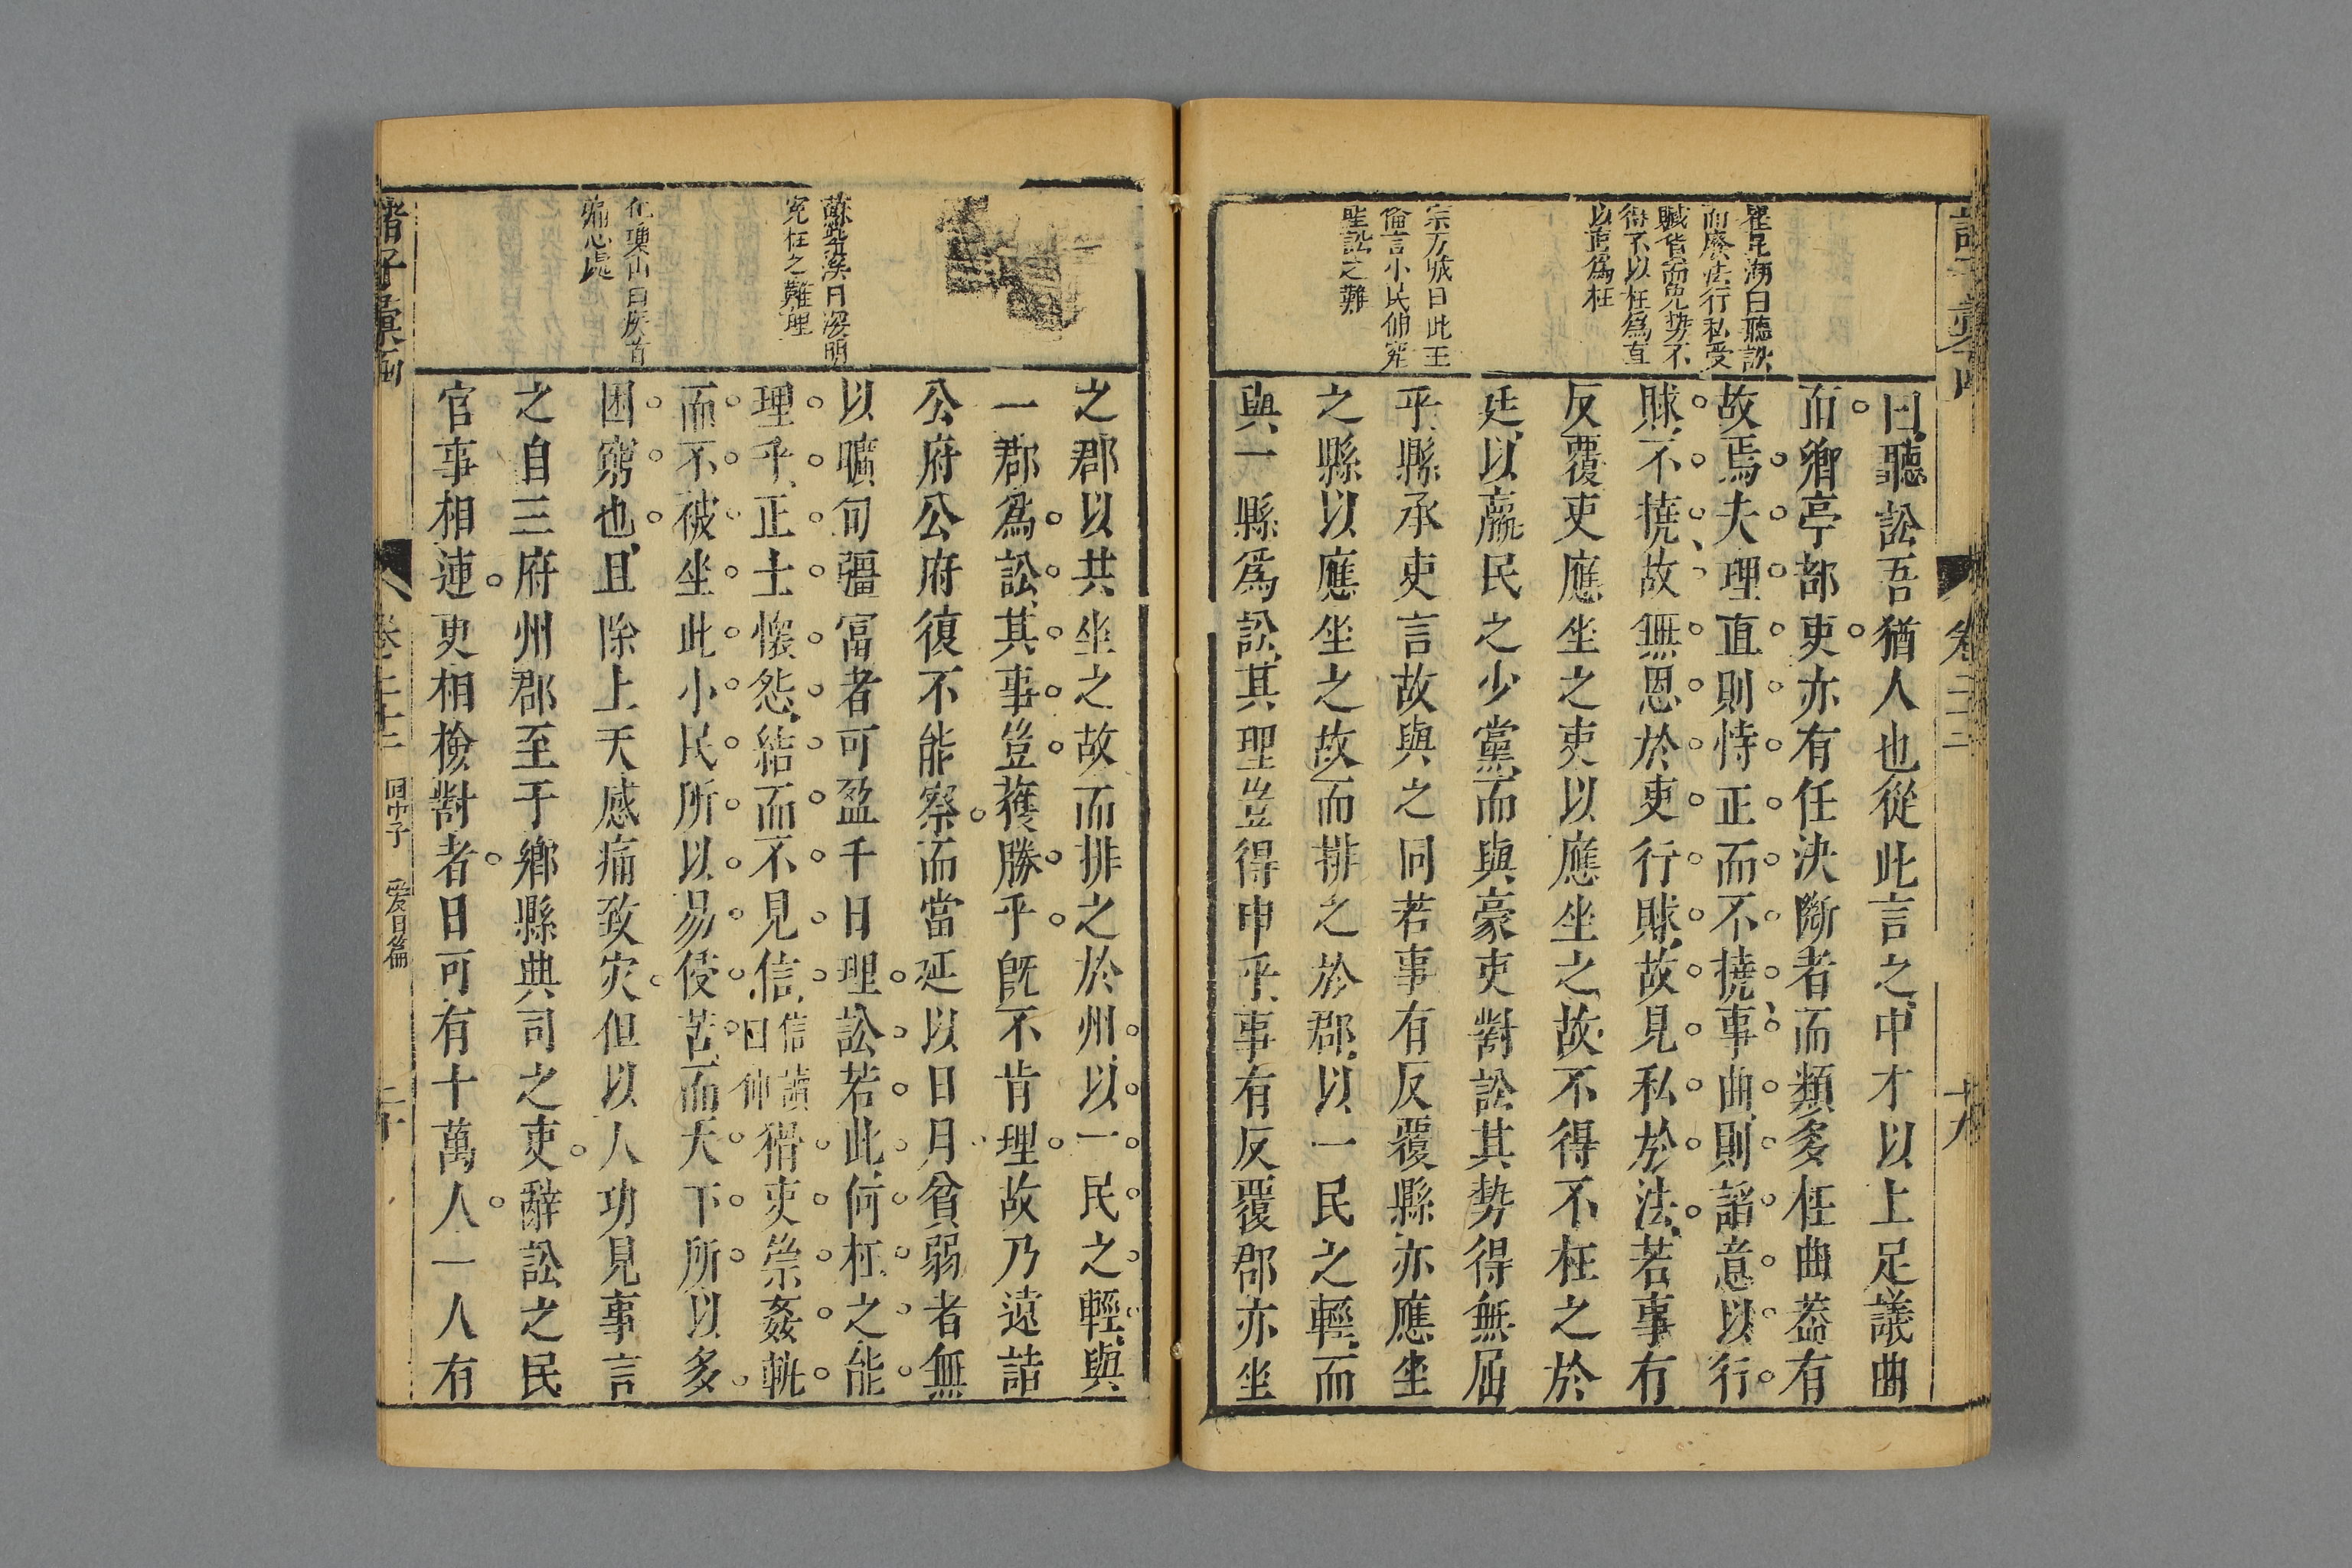 崔昆湖曰聽訟
而廢法行私受
賕貨而免勢不
得不以枉爲直
以直爲枉
宗方城曰此王
倫言小民伸寃
聖訟之難
曰聽訟吾猶人也從此言之中才以上足議曲
而鄉亭部吏亦有任決斷者而類多枉曲葢有
故焉夫理直則恃正而不撓事曲則諂意以行
賕不撓故無恩於吏行賕故見私於法若事有
反覆吏應坐之吏以應坐之故不得不枉之於
廷以羸民之少黨而與豪吏對訟其势得無屈
乎縣承吏言故與之同若事有反覆縣亦應坐
之縣以應坐之故而排之於郡以一民之輕而
與一縣爲訟其理豈得申乎事有反覆郡亦坐
卷二十二
十九
蘇紫溪曰深明
寃枉之難理
曰疾首
痛心處
之郡以共坐之故而排之於州以一民之輕與
一郡爲訟其事豈獲勝乎旣不肯理故乃遠詣
公府公府復不能察而當延以日月貧弱者無
以曠旬疆富者可盈千日理訟若此何枉之能
理乎正士懷怨結而不見信信讀曰伸猾吏崇姦軌
而不被坐此小民所以易侵苦而天下所以多
困窮也且除上天感痛致灾但以人功見事言
之自三府州郡至于鄉縣典司之吏辭訟之民
官事相連更相檢對者日可有十萬人一人有
諸子彙函
卷二十二
回中子
愛日篇
二十